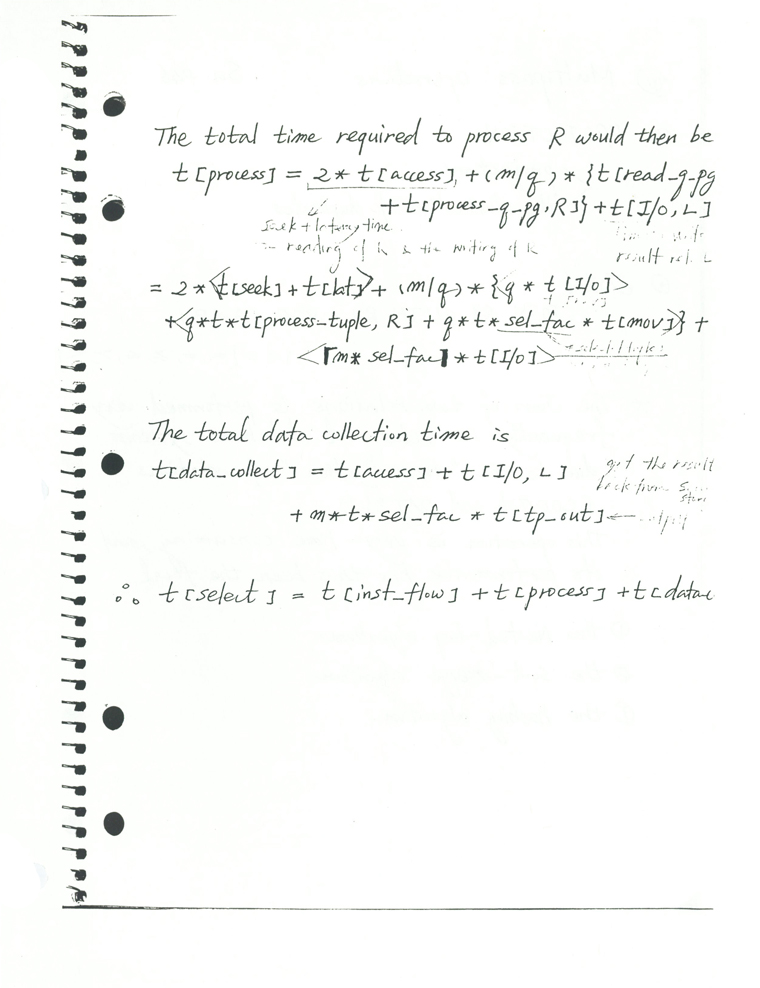 The total time required to process R would then be
t[process] = 2 * t[access] + (m/q) * {t[read_q_pg
+ t[process_q_pg, R]} + t[I/O, L]
seek + latency time
reading of R & the writing of R
result rel. L
= 2 * <t[seek] + t[lat]> + (m/q) * {q * t[I/O]>
+<q*t*t[process_tuple, R] + q*t* sel_fac * t[mov]}} +
<⌈m* sel_fac⌉ * t[I/O]>
The total data collection time is
t[data_collect] = t[access] + t[I/O, L]
get the result
back from
+ m*t*sel_fac * t[tp_out] ←
∴ t[select] = t[inst_flow] + t[process] + t[data_c